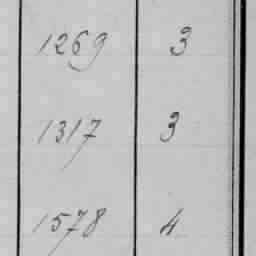 1269 3
1317 3
1578 4